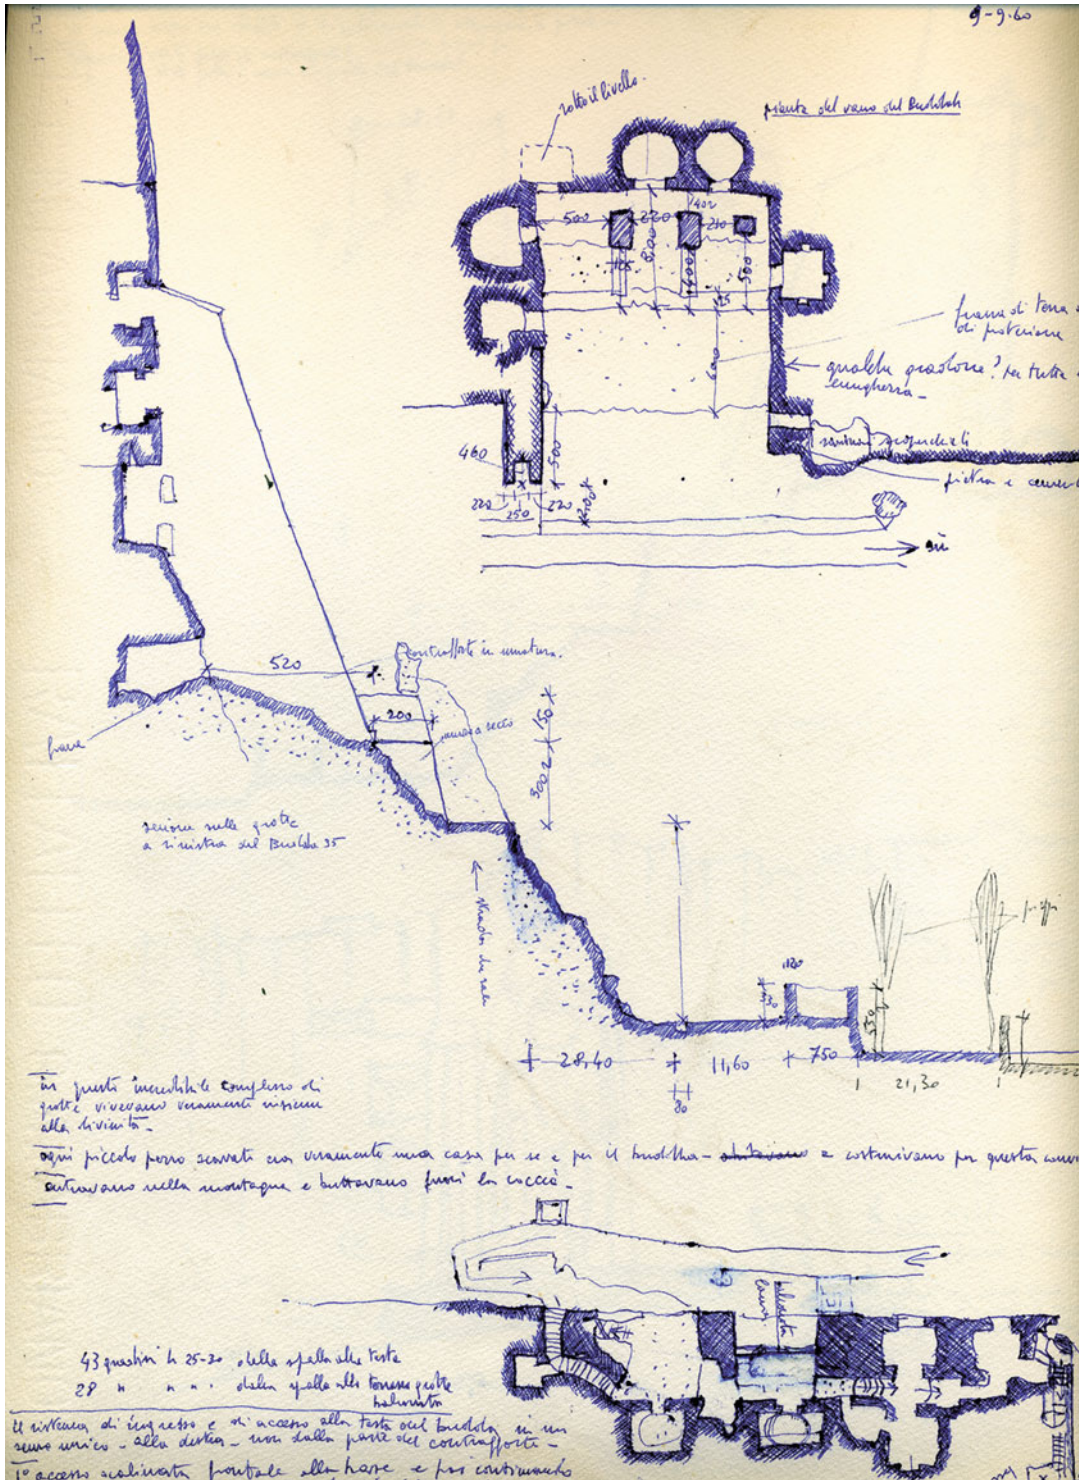 9-9-60
sotto il livello.
pianta del vano del Buddah
500
220
402
210
105
800
400
500
25
600
frana di terra
di protezione
qualche gradone? per tutta
lunghezza -
pietra e
460
500
220
250
220
su
contrafforte in muratura.
520
200
muro a secco
150
300
frana
sezione sulle grotte
a sinistra del Buddha 35
strada che sale
pioppi
120
28,40
11,60
750
21,30
80
in questi incredibile complesso di
grotte vivevano veramente insieme
alla divinità -
ogni piccolo pezzo scavato era veramente una casa per se e per il buddha - abitavano e costruivano per questa
entravano nella montagna e buttavano fuori la roccia -
43 gradini h 25-30 dalla spalla alla testa
28 " " " " dalla spalla alle grotte
balconata
il sistema di ingresso e di accesso alla testa del buddda in un
senso unico - alla destra - non dalla parte del contrafforte -
1° accesso scalinata frontale alla base e poi continuando